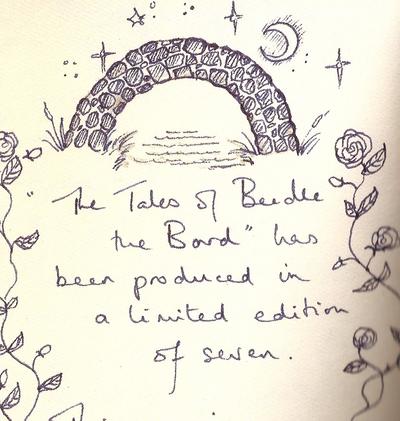 "The Tales of Beedle
the Bard" has
been produced in
a limited edition
of seven.